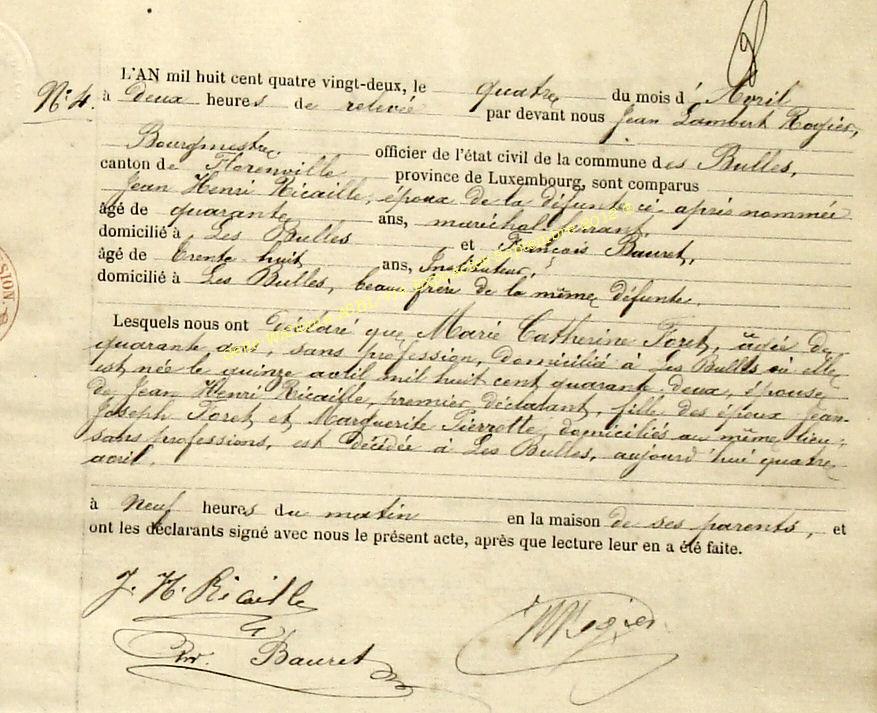 L'AN mil huit cent quatre vingt-deux, le quatre du mois d' Avril
N° 4. à deux heures de relevée par devant nous Jean Lambert Rogier,
Bourgmestre officier de l'état civil de la commune des Bulles,
canton de Florenville province de Luxembourg, sont comparus
Jean Henri Ricaille, époux de la défunte ci-après nommée
âgé de quarante ans, maréchal ferrant,
domicilié à Les Bulles et François Bauret,
âgé de trente huit ans, Instituteur,
domicilié à Les Bulles, beau frère de la même défunte.
Lesquels nous ont déclaré que Marie Catherine Foret, âgée de
quarante ans, sans profession, domiciliée à Les Bulles où elle
est née le quinze avril mil huit cent quarante deux, épouse
de Jean Henri Ricaille, premier déclarant, fille des époux Jean-
Joseph Foret et Marguerite Pierrette, domiciliés au même lieu,
sans professions, est décédée à Les Bulles, aujourd'hui quatre
avril.
à neuf heures du matin en la maison de ses parents, et
ont les déclarants signé avec nous le présent acte, après que lecture leur en a été faite.
J. H. Ricaille
Bauret
Rogier
SION.